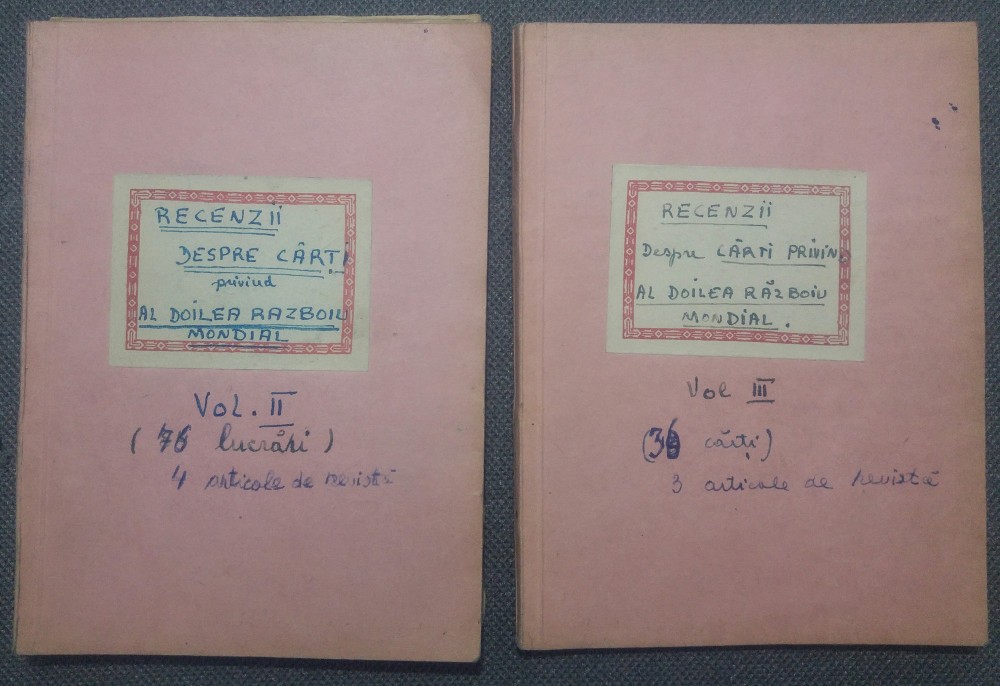 RECENZII
DESPRE CĂRȚI
privind
AL DOILEA RAZBOIU
MONDIAL
VOL. II
(76 lucrări)
4 articole de revistă
RECENZII
Despre CĂRȚI PRIVIND
AL DOILEA RĂZBOIU
MONDIAL.
Vol III
(36 cărți)
3 articole de revistă